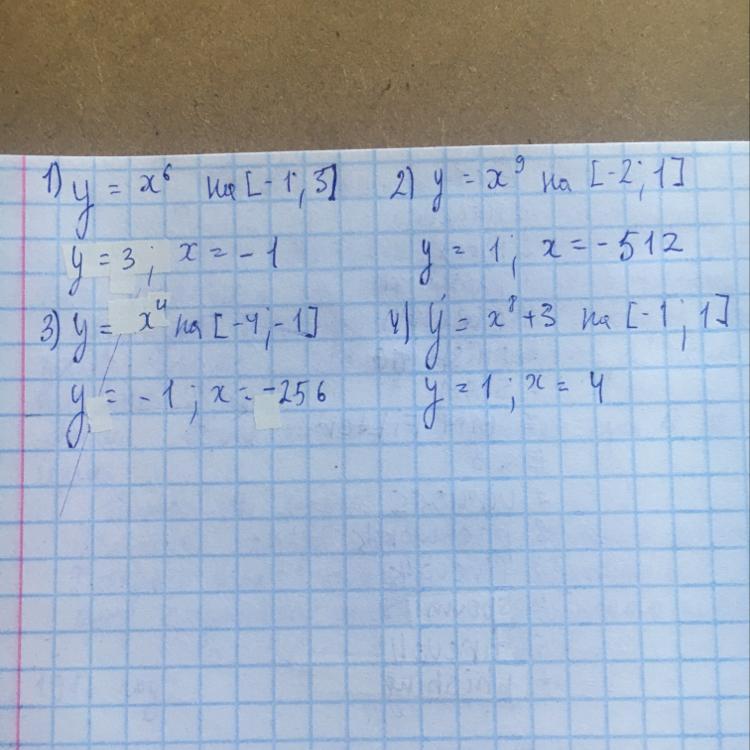 1) y = x⁶ на [-1; 3] 2) y = x⁹ на [-2; 1]
y = 3; x = -1 y = 1; x = -512
3) y = x⁴ на [-4; -1] 4) y = x⁸+3 на [-1; 1]
y = -1; x = -256 y = 1; x = 4